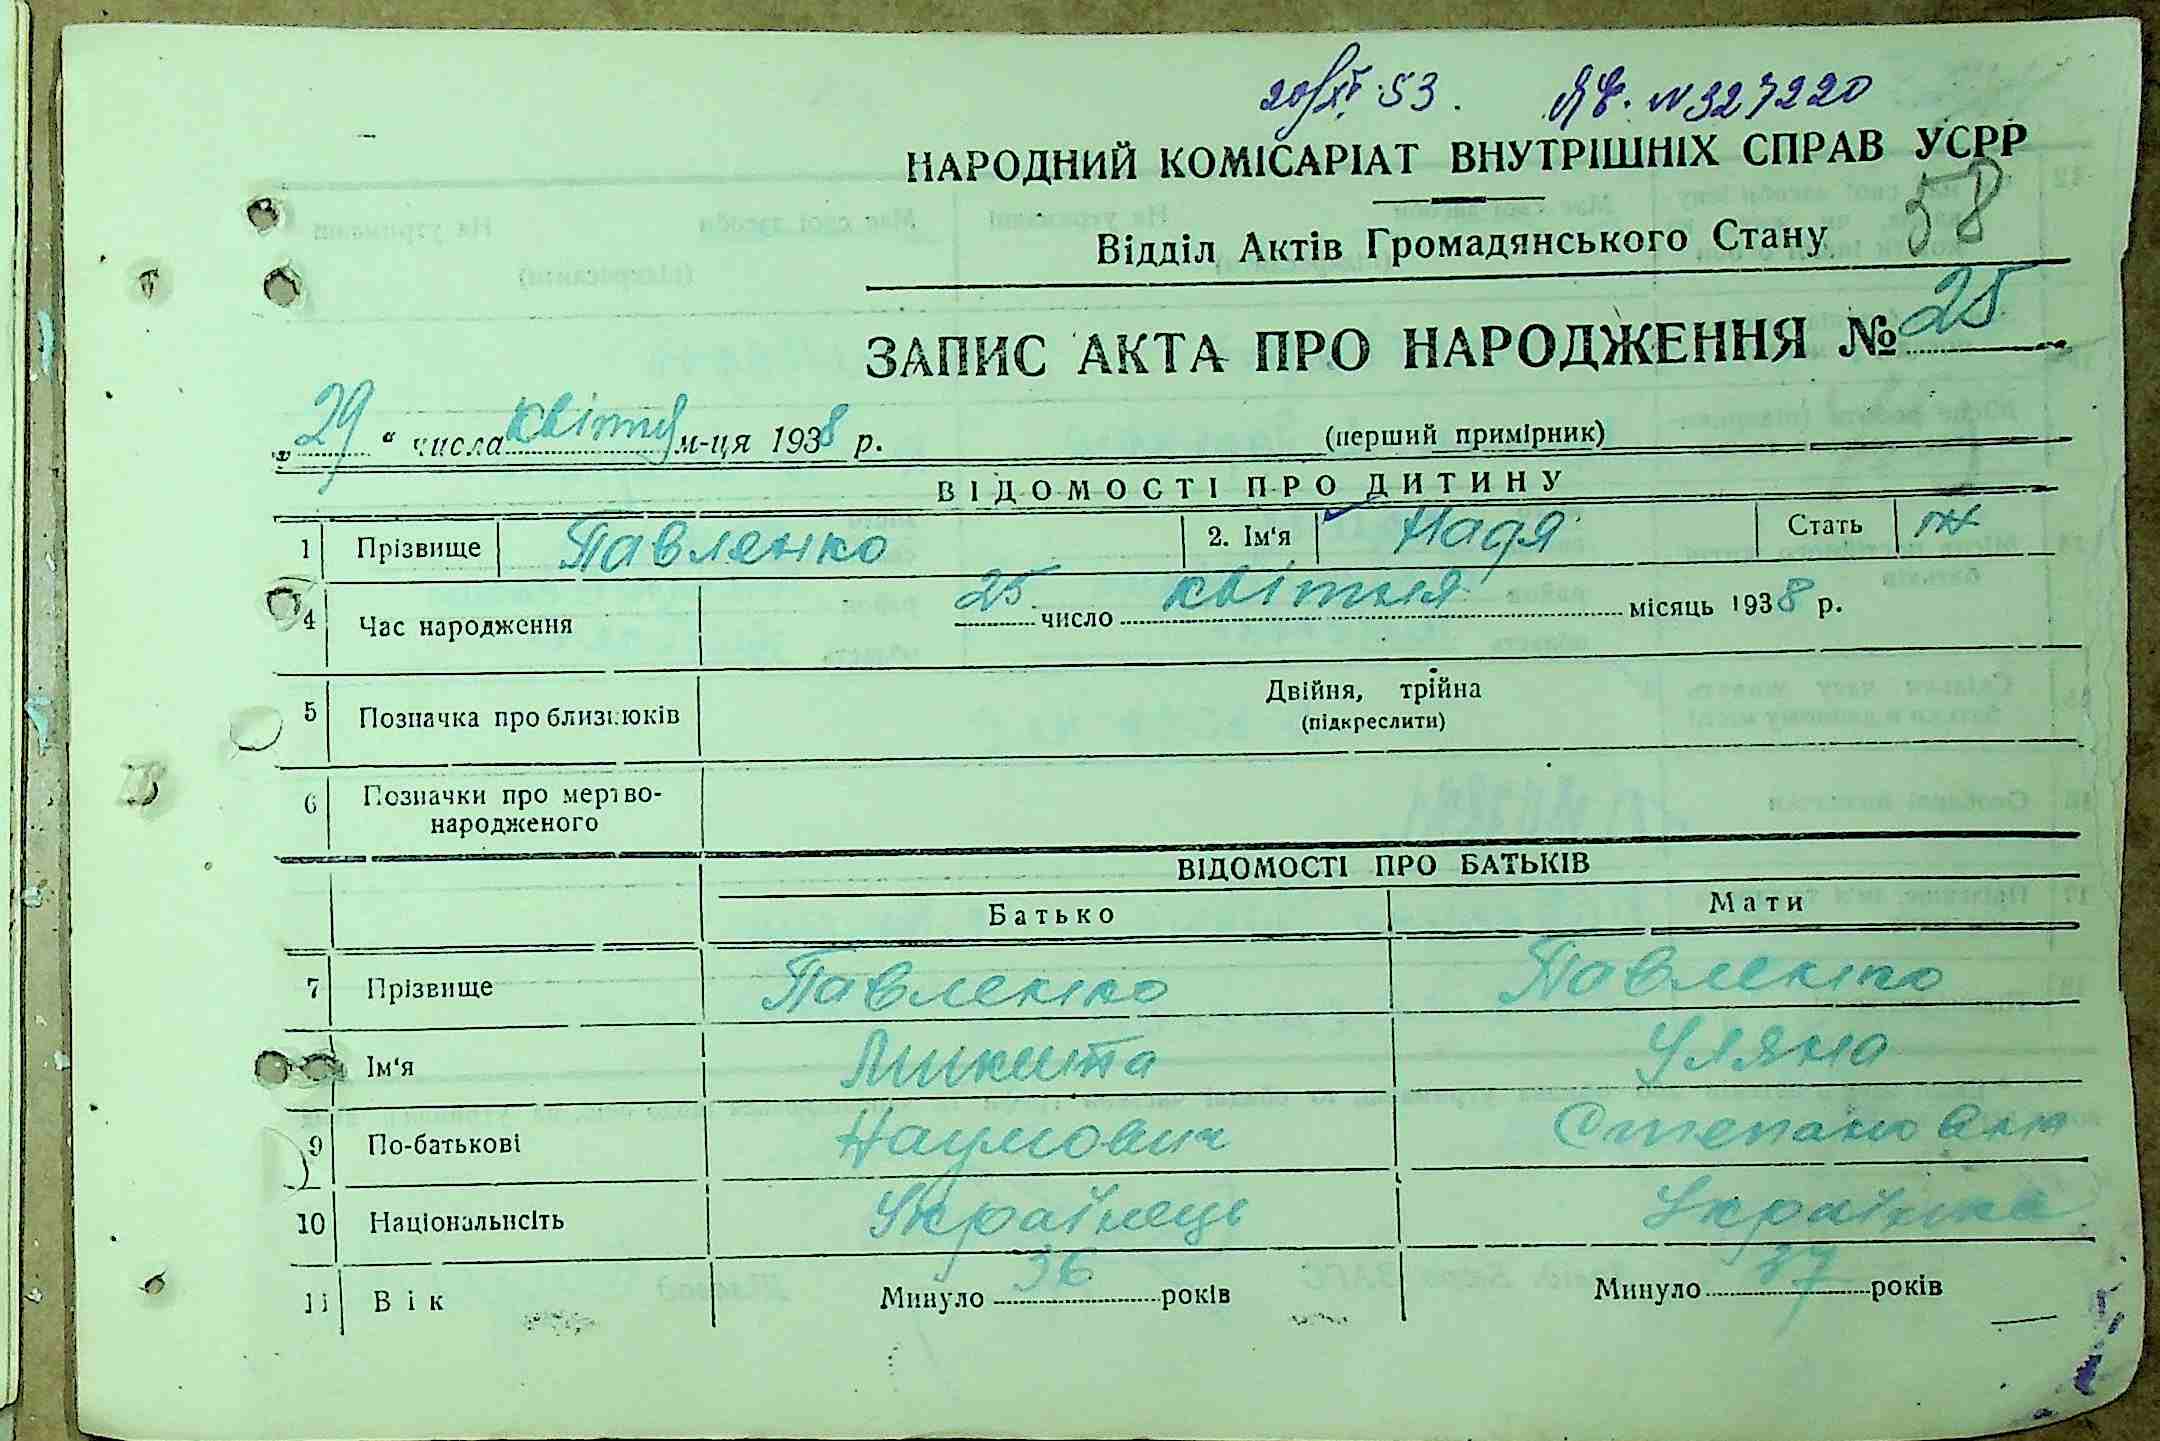 20/XI 53. ЯЧ. N327220
НАРОДНИЙ КОМІСАРІАТ ВНУТРІШНІХ СПРАВ УСРР
58
Відділ Актів Громадянського Стану
ЗАПИС АКТА ПРО НАРОДЖЕННЯ № 25
„29“ числа квітня м-ця 1938 р. (перший примірник)
ВІДОМОСТІ ПРО ДИТИНУ
1 Прізвище Павленко 2. Ім'я Надя Стать ж
4 Час народження 25 число квітня місяць 1938 р.
5 Позначка про близнюків Двійня, трійна
(підкреслити)
6 Позначки про мертво-
народженого
ВІДОМОСТІ ПРО БАТЬКІВ
Батько Мати
7 Прізвище Павленко Павленко
Ім'я Микита Уляна
9 По-батькові Наумович Степановн
10 Національність Українець Українка
11 Вік Минуло 36 років Минуло 37 років